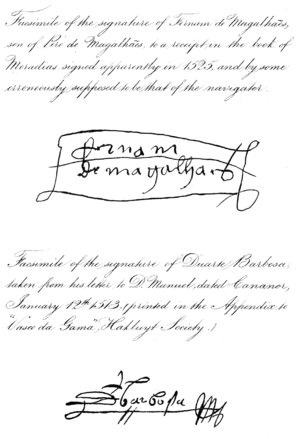 Facsimile of the signature of Fernam de Magalhaēs,
son of Pero de Magalhaēs, to a receipt in the book of
Moradias signed apparently in 1525, and by some
erroneously supposed to be that of the navigator.
fernam
de magalhaēs
Facsimile of the signature of Duarte Barbosa,
taken from his letter to D. Manuel, dated Cananor,
January 12th 1513, (printed in the Appendix to
"Vasco da Gama", Hakluyt Society.)
Barbosa